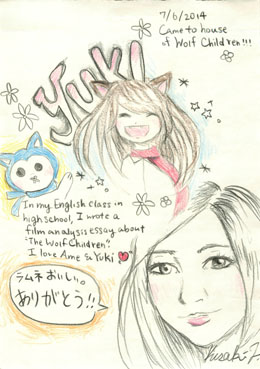 7/6/2014
Came to house
of
Wolf Children!!!
YUKI
In my English class in
high school, I wrote a
film analysis essay about
"The Wolf Children".
I love Ame & Yuki
ラムネおいしい。
ありがとう!!